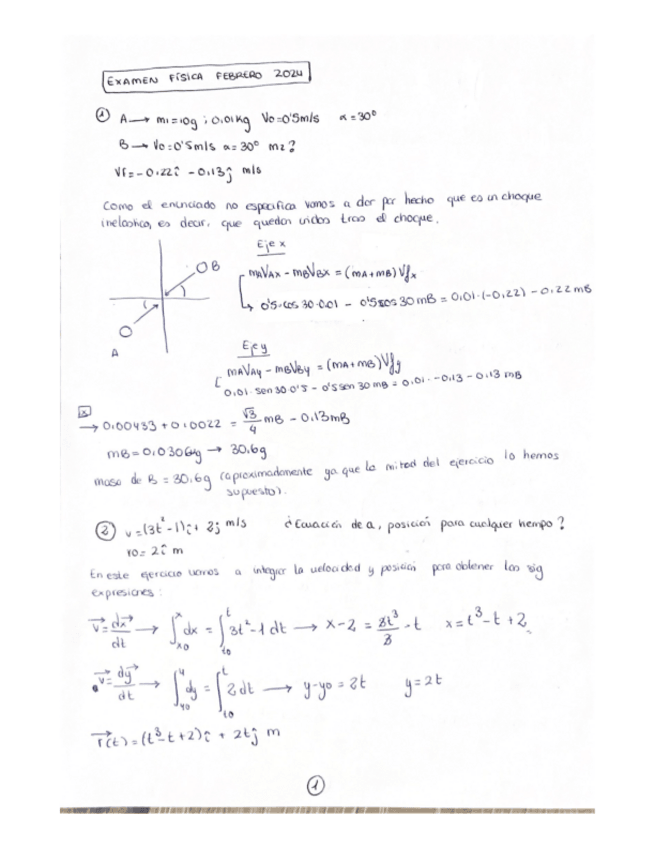 EXAMEN FÍSICA FEBRERO 2024
① A → m1=10g ; 0,01Kg V0=0'5m/s α=30º
B → V0=0'5m/s α=30º m2?
Vf=-0,22î -0,13ĵ m/s
Como el enunciado no especifica vamos a dar por hecho que es un choque
inelástico, es decir, que quedan unidos tras el choque.
Eje x
mAVAx - mBVBx = (mA+mB)Vfx
↳ 0'5·cos 30·0.01 - 0'5 cos 30 mB = 0,01·(-0,22) - 0,22 mB
B
A
Eje y
mAVAy - mBVBy = (mA+mB)Vfy
0,01·sen 30·0'5 - 0'5 sen 30 mB = 0,01·-0,13 - 0,13 mB
x
→ 0,00433 + 0,0022 = √3/4 mB - 0,13mB
mB = 0,0306Kg → 30,6g
masa de B = 30,6g (aproximadamente ya que la mitad del ejercicio lo hemos
supuesto).
② v=(3t²-1)î + 2ĵ m/s ¿Ecuación de a, posición para cualquier tiempo?
r0 = 2î m
En este ejercicio vamos a integrar la velocidad y posición para obtener las sig
expresiones:
v=dx/dt → ∫x0^x dx = ∫t0^t 3t²-1 dt → x-2 = 3t³/3 - t x=t³-t+2
v=dy/dt → ∫y0^y dy = ∫t0^t 2dt → y-y0 = 2t y=2t
r(t)=(t³-t+2)î + 2tĵ m
①